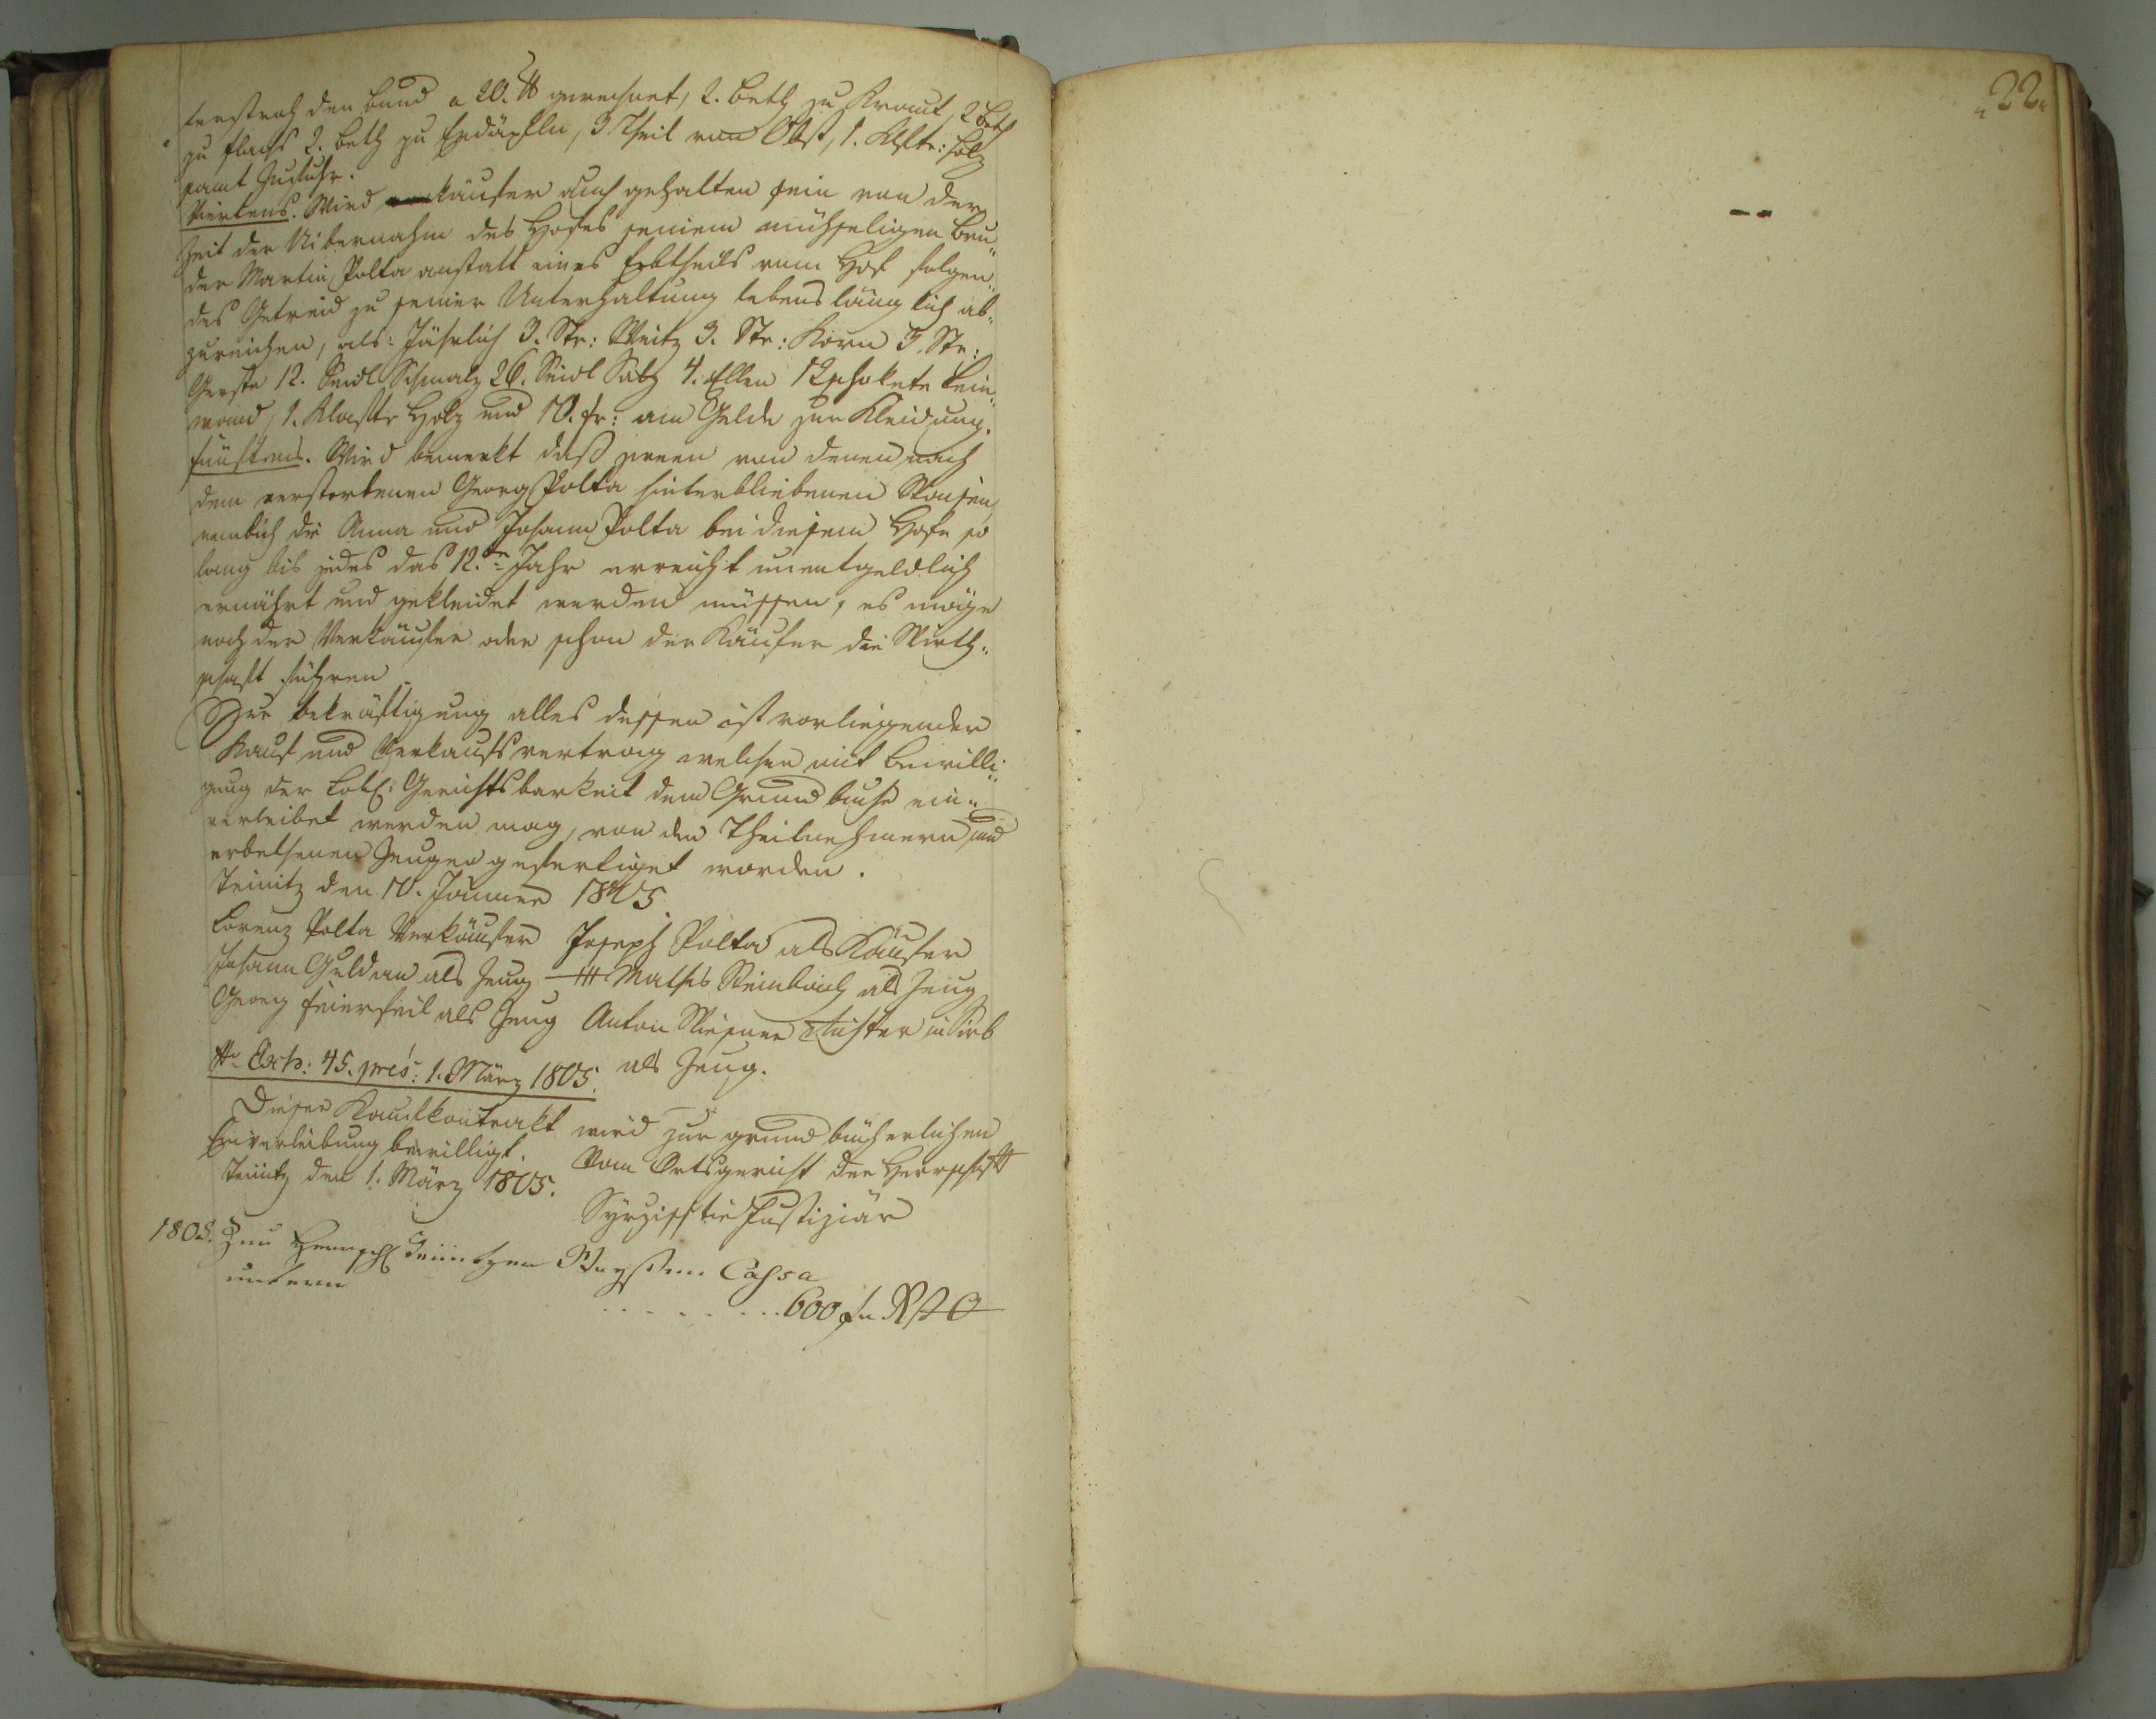 terstroh den bund a 20. ℔ gerechnet, 2. beth zu Kraut, 2 beth
zu flachs 2. beth zu Erdäpfeln, 3 Theil vom Obst, 1. Klftr: Holz
samt Zufuhr.
Viertens. Wird käufer auch gehalten sein von der
Zeit der Uibernahm des Hofes seinem mühseligen bru„
der Martin Polta anstatt eines Erbtheils vom Hof folgen„
des Getreid zu seiner Unterhaltung lebenslänglich ab„
zureichen, als: Jährlich 3. Str: Weitz 3. Str: Korn 3. Str:
Gerste 12. Seidl Schmalz 26. Seidl Salz 4. Ellen lein„
wand, 1. Klafter Holz und 10. fr: am Gelde zur Kleidung.
fünftens. Wird bemerkt daß zween von denen nach
dem verstorbenen Georg Polta hinterbliebenen Waisen,
nemlich die Anna und Johann Polta bei diesem Hofe so
lang bis jedes das 12.te Jahr erreicht unentgeldlich
ernährt und gekleidet werden müssen, es möge
noch der Verkäufer oder schon der Käufer die Wirth„
schaft führen
Zur bekräftigung alles dessen ist vorliegender
Kauf und Verkaufsvertrag welcher mit bewilli„
gung der Löbl: Gerichtsbarkeit dem Grundbuche ein„
verleibet werden mag, von den Theilnehmern und
erbethenen Zeugen gefertiget worden.
Teinitz den 10. Jänner 1805
Lorenz Polta Verkäufer Joseph Polta als Käufer
Johann Guldan als Zeug +++ Mathes Steinbach als Zeug
Georg feierfeil als Zeug Anton Richter in Sirb
als Zeug.
Nr. Exh: 45. pres: 1. März 1805.
Dieser Kaufkontrakt wird zur grundbücherlichen
Einverleibung bewilligt.
Vom Ortsgericht der Herrschaft
Teinitz den 1. März 1805.
Justiziär
1808. Zur Herrschl Teinitzer Waysen Cassa
600 fr
„22„